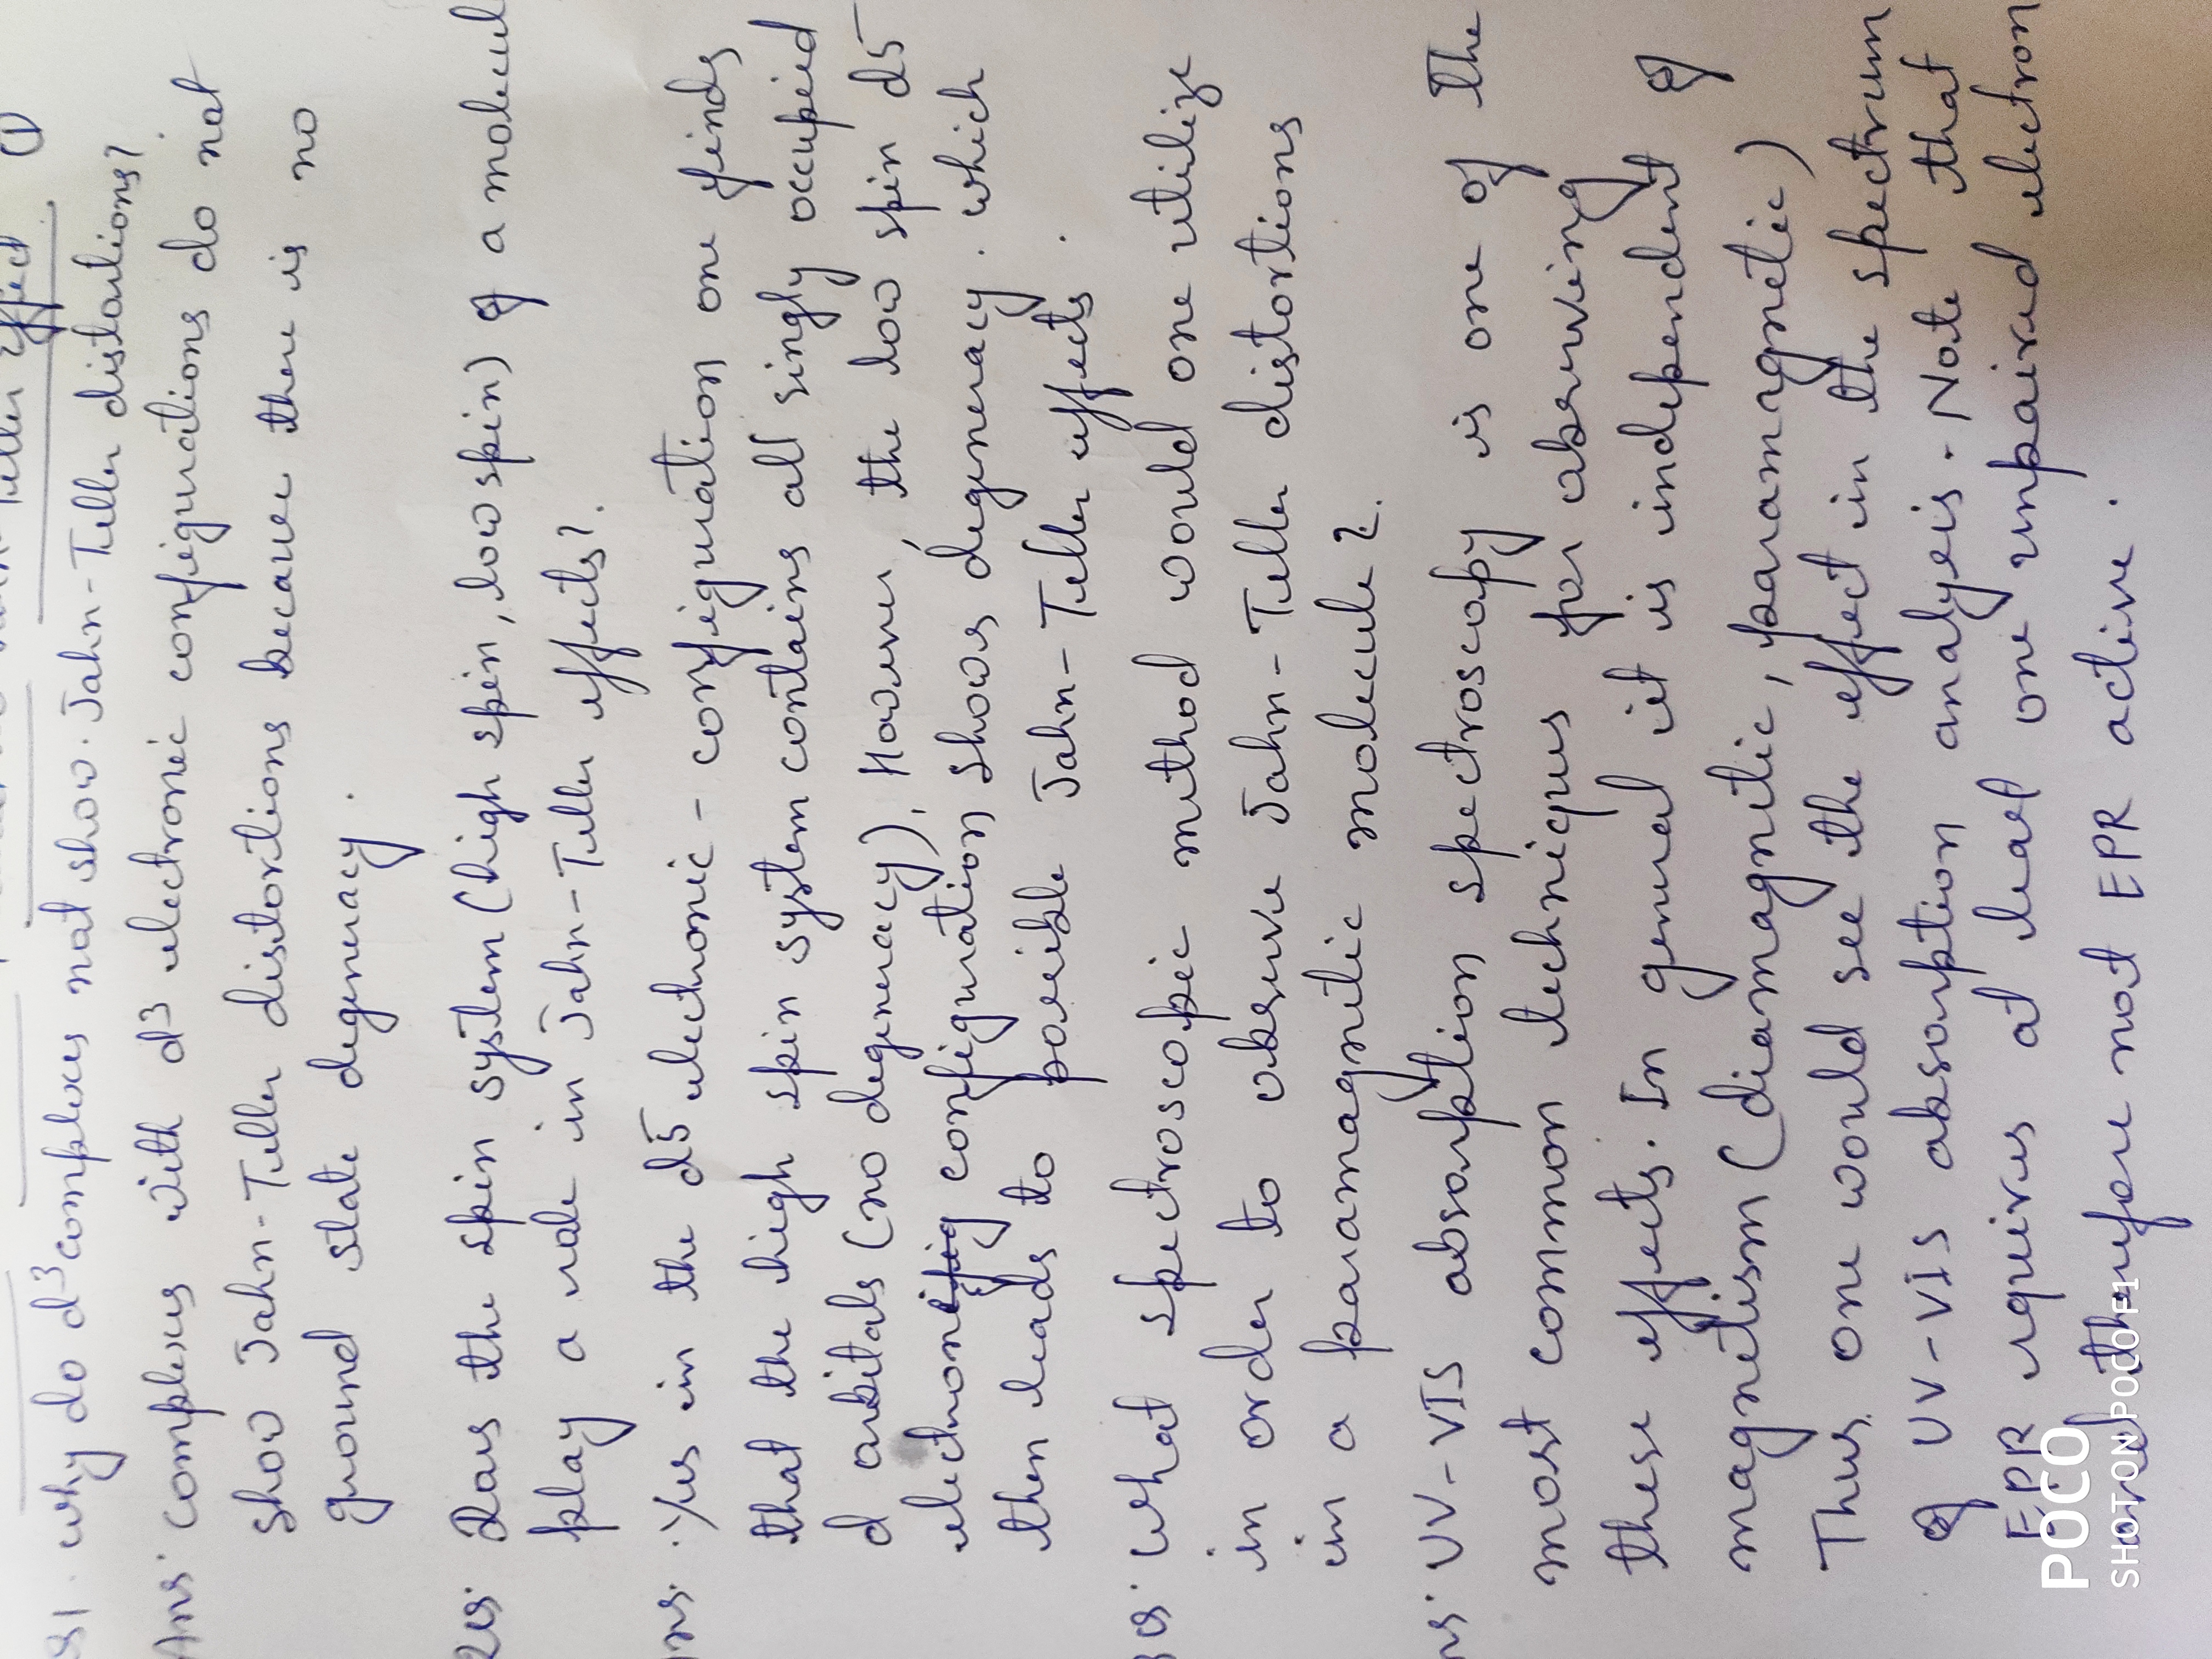 Teller effect (1)
Q1. why do d3 complexes not show Jahn-Teller distortions?
Ans. Complexes with d3 electronic configurations do not
show Jahn-Teller distortions because there is no
ground state degeneracy.
Does the spin system (high spin, low spin) of a molecul
play a role in Jahn-Teller effects?.
Yes in the d5 electronic - configuration one finds
that the high spin system contains all singly occupied
d orbitals (no degeneracy). However, the low spin d5
electronic configuration shows degeneracy. which
then leads to possible Jahn-Teller effects.
What spectroscopic method would one utilize
in order to observe Jahn-Teller distortions
in a paramagnetic molecule?.
UV-VIS absorption spectroscopy is one of the
most common techniques for observing
these effects. In general it is independent of
magnetism (diamagnetic, paramagnetic)
Thus one would see the effect in the spectrum
of UV-VIS absorption analysis. Note that
EPR requires at least one unpaired electron
and therefore not EPR active.
POCO
SHOT ON POCO F1